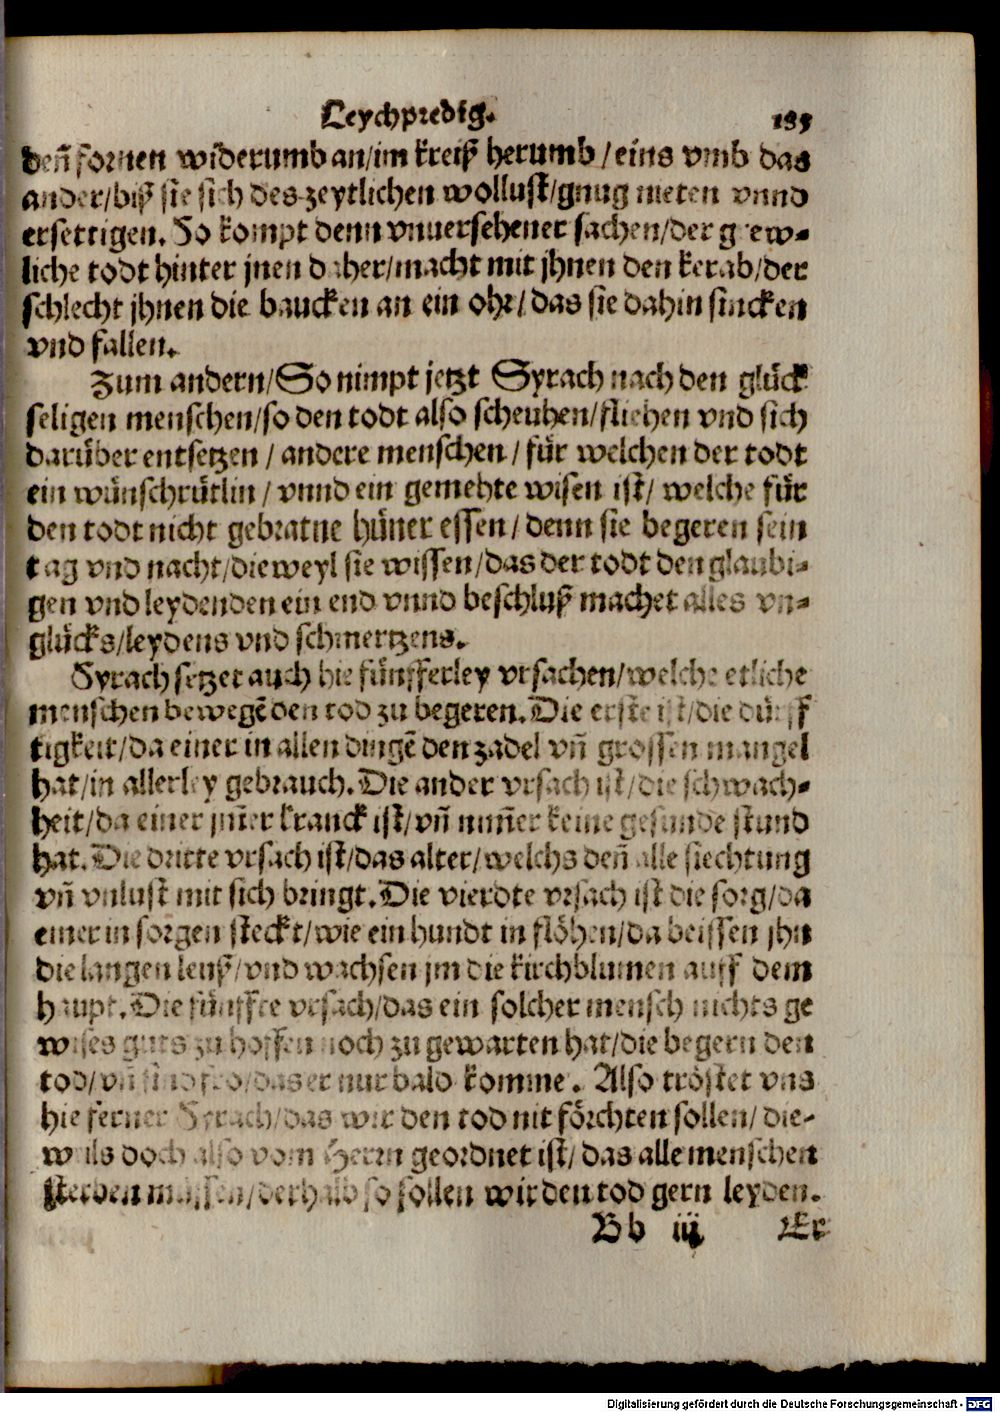 Leychpredig. 195
deñ fornen widerumb an/im kreiß herumb/eins vmb das
ander/biß sie sich des zeytlichen wollust/gnug nieten vnnd
ersettigen. So kompt denn vnuersehener sachen/der grew-
liche todt hinter jnen daher/macht mit jhnen den kerab/der
schlecht jhnen die baucken an ein ohr/das sie dahin sincken
vnd fallen.
Zum andern/So nimpt jetzt Syrach nach den glück
seligen menschen/so den todt also scheuhen/fliehen vnd sich
darüber entsetzen/andere menschen/für welchen der todt
ein wünschrütlin/vnnd ein gemehte wisen ist/welche für
den todt nicht gebratne hüner essen/denn sie begeren sein
tag vnd nacht/dieweyl sie wissen/das der todt den glaubi-
gen vnd leydenden ein end vnnd beschluß machet alles vn-
glücks/leydens vnd schmertzens.
Syrach setzet auch hie fünfferley vrsachen/welche etliche
menschen bewegẽ den tod zu begeren. Die erste ist/die dürff
tigkeit/da einer in allen dingẽ den zadel vñ grossen mangel
hat/in allerley gebrauch. Die ander vrsach ist/die schwach-
heit/da einer jm̃er kranck ist/vñ nim̃er keine gesunde stund
hat. Die dritte vrsach ist/das alter/welchs deñ alle siechtung
vñ vnlust mit sich bringt. Die vierdte vrsach ist die sorg/da
einer in sorgen steckt/wie ein hundt in flöhen/da beissen jhn
die langen leuß/vnd wachsen jm die kirchblumen auff dem
haupt. Die fünffte vrsach/das ein solcher mensch nichts ge
wises guts zu hoffen noch zu gewarten hat/die begern den
tod/vñ sind fro/das er nur bald komme. Also tröstet vns
hie ferner Syrach/das wir den tod nit förchten sollen/die-
weils doch also vom Herrn geordnet ist/das alle menschen
sterben müssen/derhalb so sollen wir den tod gern leyden.
Bb iij Er
Digitalisierung gefördert durch die Deutsche Forschungsgemeinschaft - DFG